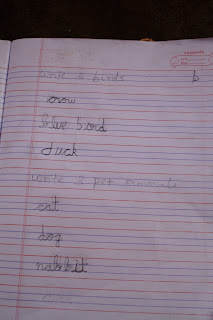 write 3 birds
b
crow
blue bird
duck
write 3 pet animals
cat
dog
rabbit